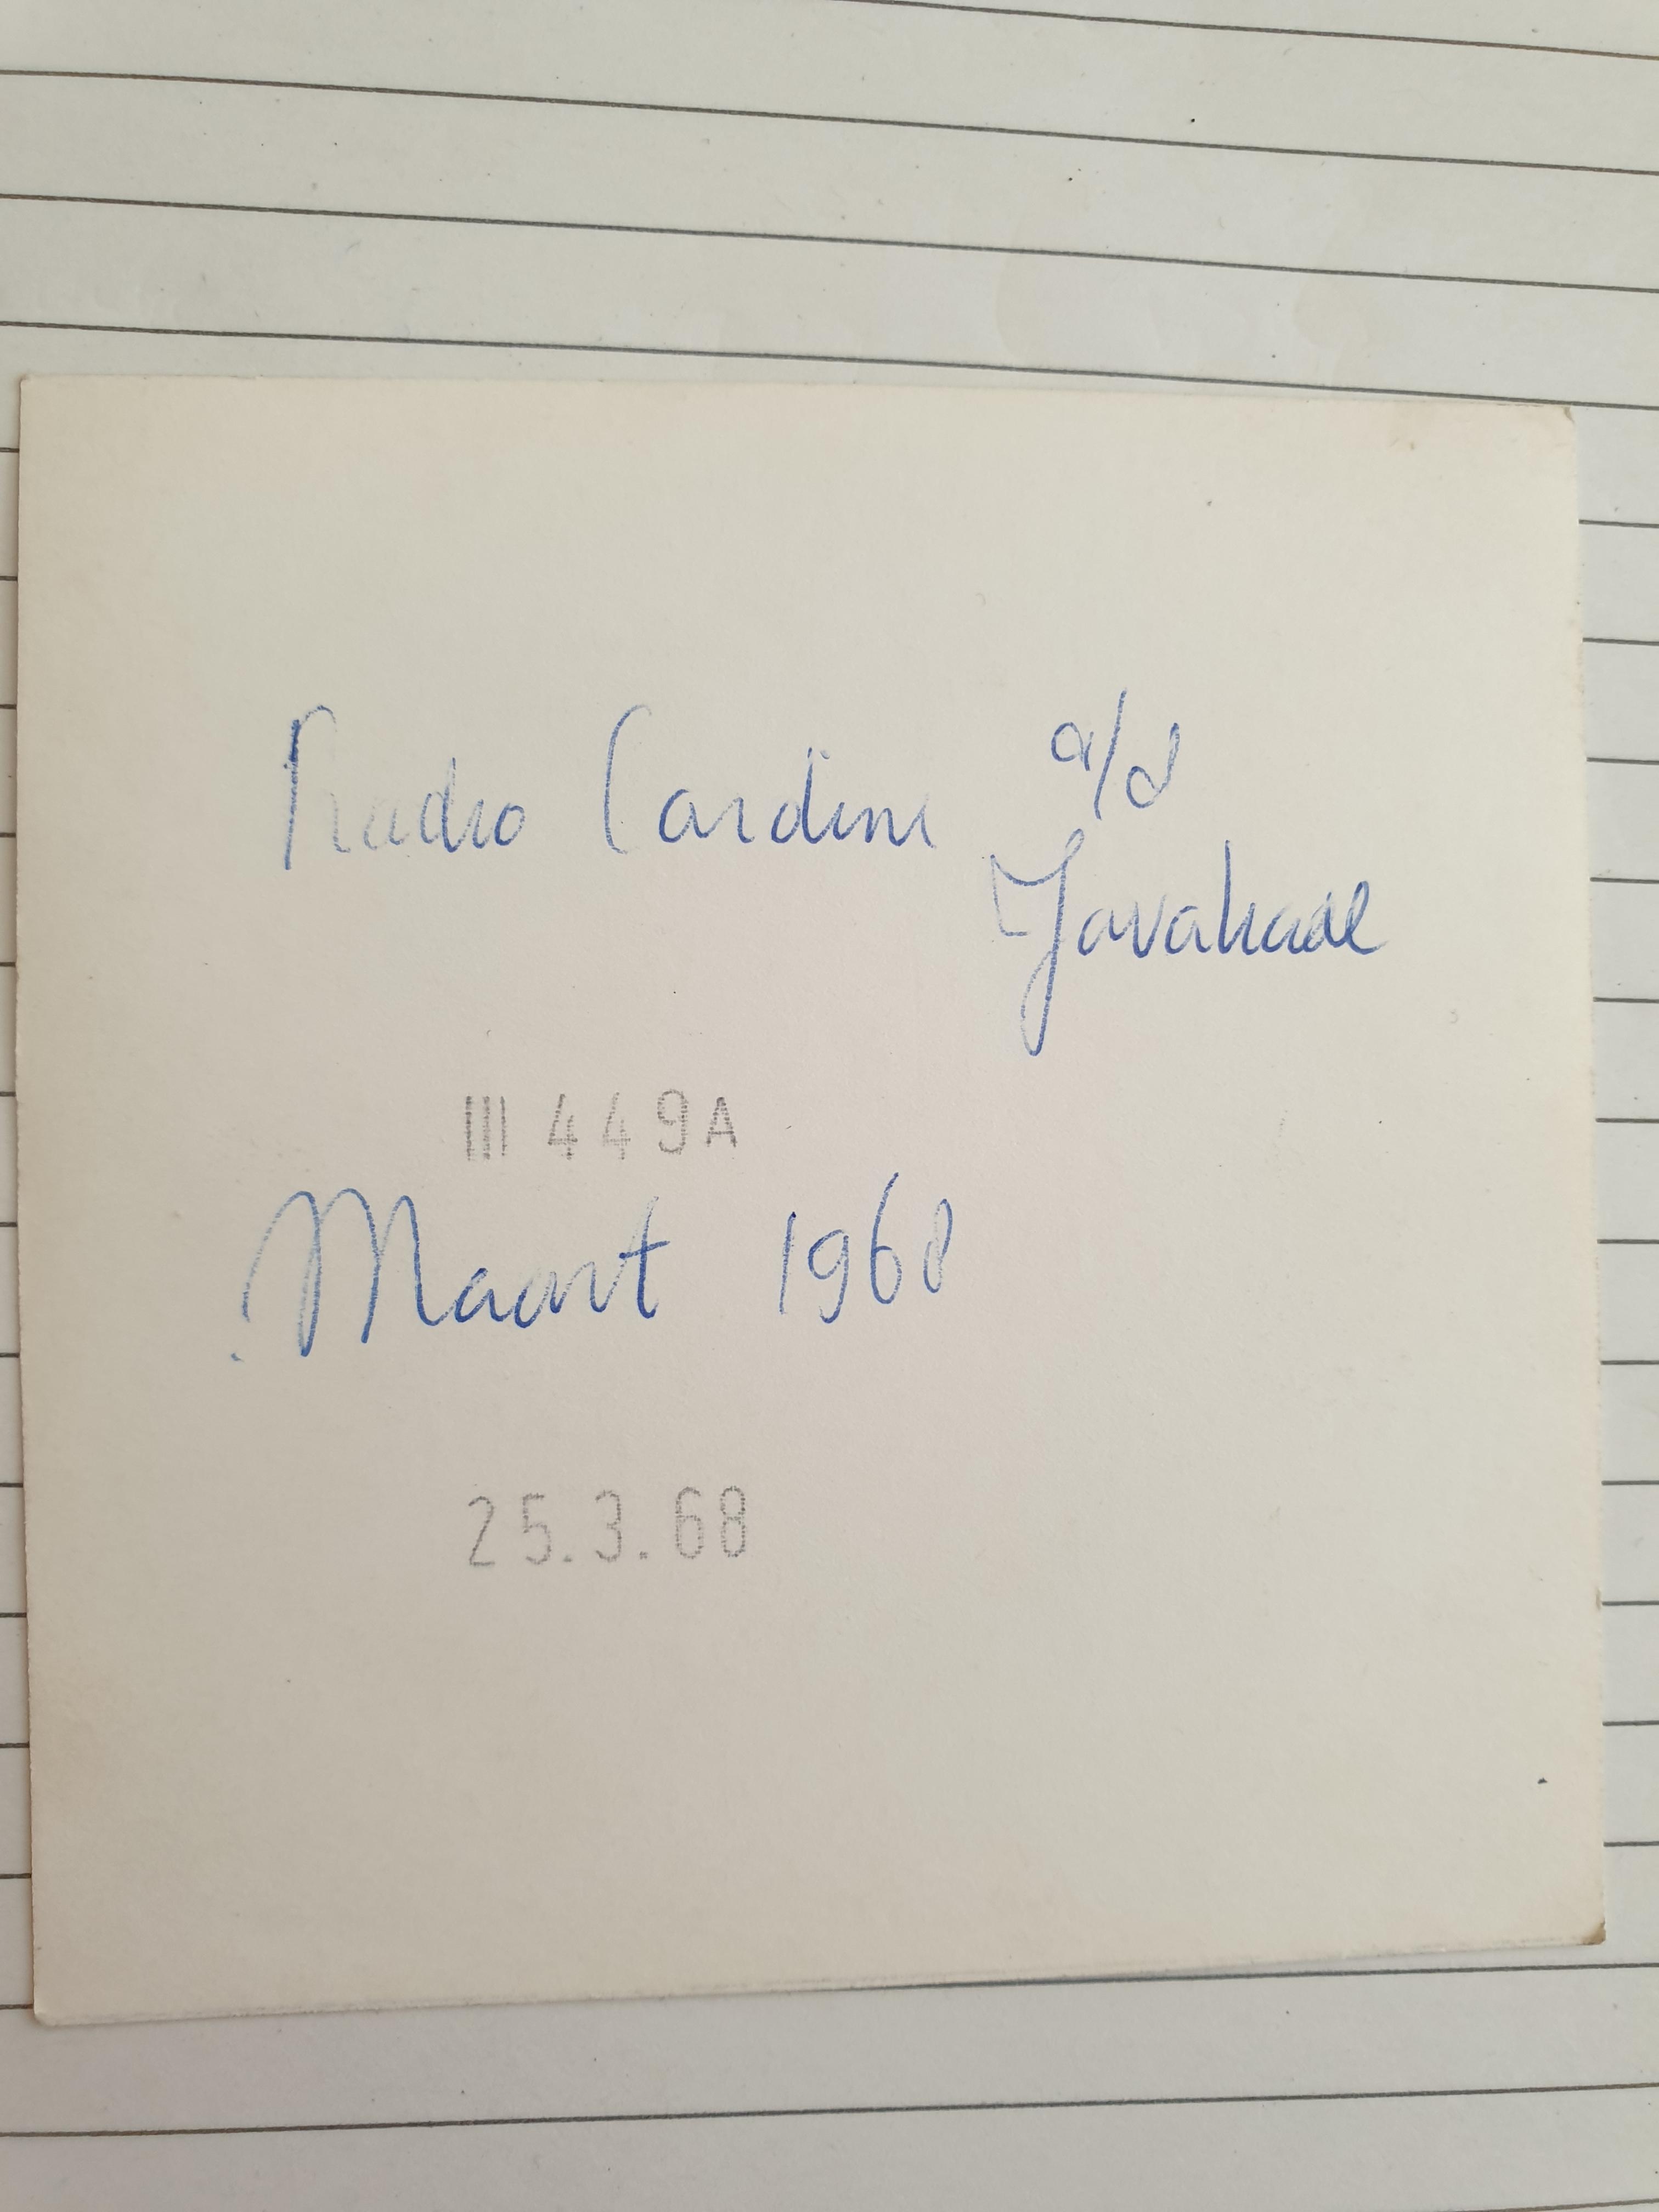 Radio Cardine a/d
Javakade
III 449A
Maart 1968
25.3.68